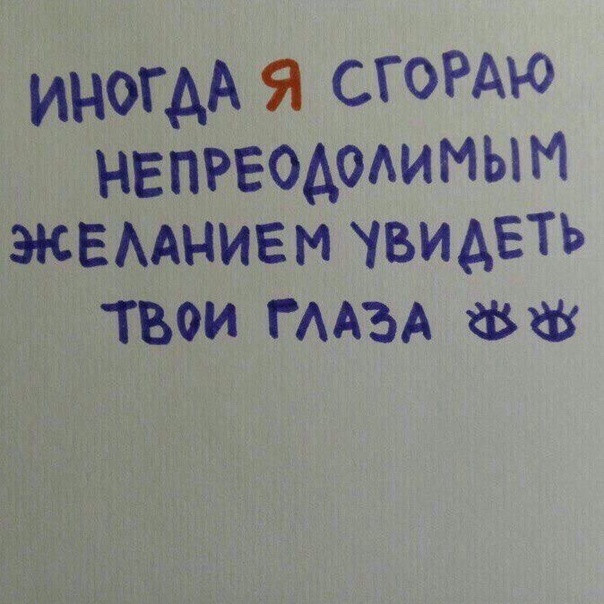 ИНОГДА Я СГОРАЮ
НЕПРЕОДОЛИМЫМ
ЖЕЛАНИЕМ УВИДЕТЬ
ТВОИ ГЛАЗА